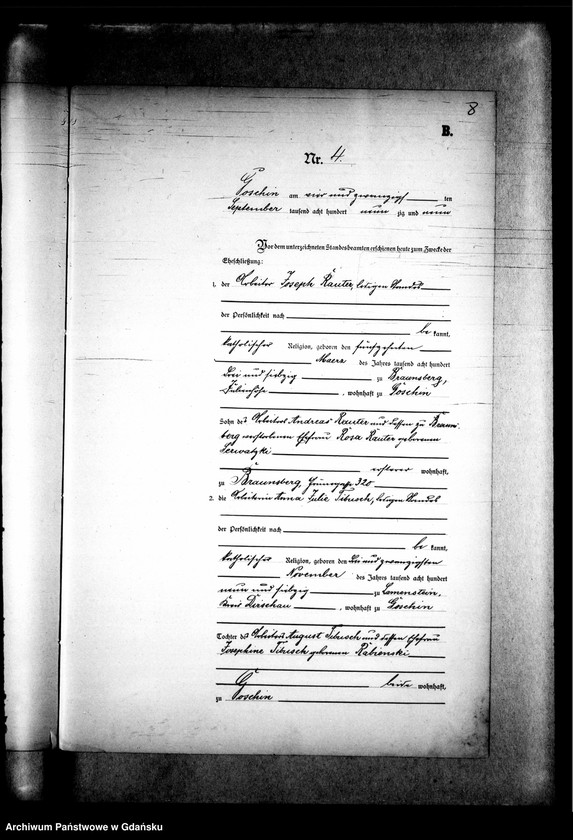 8
B.
Nr. 4.
Goschin am vier und zwanzigsten
September tausend acht hundert neun zig und neun
Vor dem unterzeichneten Standesbeamten erschienen heute zum Zwecke der
Eheschließung:
1. der Arbeiter Joseph Rauter, ledigen Standes
der Persönlichkeit nach
be kannt,
katholischer Religion, geboren den fünfzehnten
Maerz des Jahres tausend acht hundert
drei und siebzig zu Braunsberg,
, wohnhaft zu Goschin
Sohn des Arbeiters Andreas Rauter und dessen zu Brauns
berg verstorbenen Ehefrau Rosa Rauter geborenen
ersterer wohnhaft,
zu Braunsberg, 320
2. die Arbeiterin Anna Julie Tibusch, ledigen Standes
der Persönlichkeit nach
be kannt,
katholischer Religion, geboren den drei und zwanzigsten
November des Jahres tausend acht hundert
neun und siebzig zu Lamenstein,
Kreis Dirschau, wohnhaft zu Goschin
Tochter des Arbeiters August Tibusch und dessen Ehefrau
Josephine Tibusch geborenen Rabienski
beide wohnhaft,
zu Goschin
Archiwum Państwowe w Gdańsku